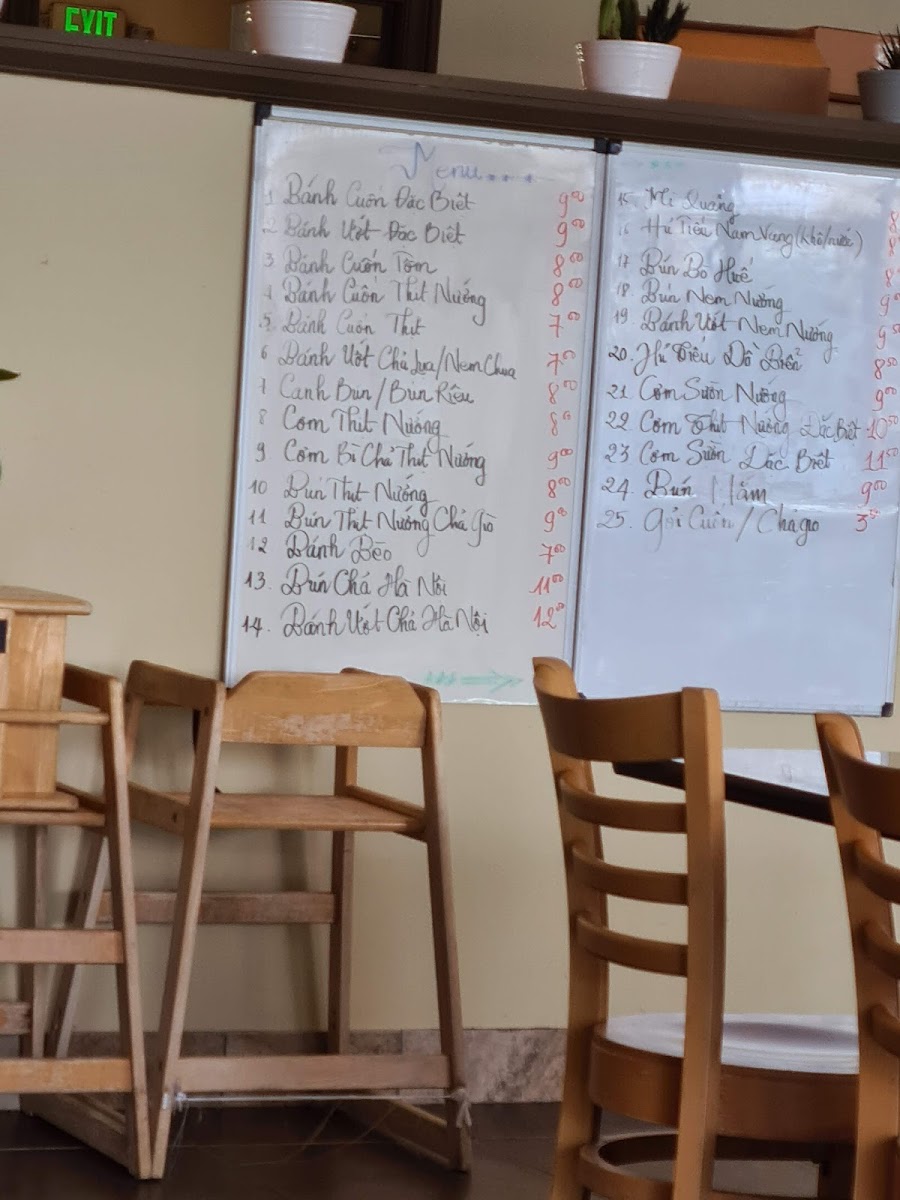 EXIT
Menu...
1 Bánh Cuốn Đặc Biệt 9⁰⁰
2 Bánh Ướt Đặc Biệt 9⁰⁰
3. Bánh Cuốn Tôm 8⁰⁰
4 Bánh Cuốn Thịt Nướng 8⁰⁰
5. Bánh Cuốn Thịt 7⁰⁰
6 Bánh Ướt Chả Lụa/Nem Chua 7⁰⁰
7 Canh Bún/Bún Riêu 8⁰⁰
8 Cơm Thịt Nướng 8⁰⁰
9 Cơm Bì Chả Thịt Nướng 9⁰⁰
10 Bún Thịt Nướng 8⁰⁰
11 Bún Thịt Nướng Chả Giò 9⁰⁰
12 Bánh Bèo 7⁰⁰
13. Bún Chả Hà Nội 11⁰⁰
14. Bánh Ướt Chả Hà Nội 12⁰⁰
15. Mì Quảng 8
16 Hủ Tiếu Nam Vang (khô/nước) 8
17 Bún Bò Huế 8
18. Bún Nem Nướng 9
19 Bánh Ướt Nem Nướng 9⁵⁰
20. Hủ Tiếu Đồ Biển 8⁵⁰
21 Cơm Sườn Nướng 9⁰⁰
22 Cơm Thịt Nướng Đặc Biệt 10⁵⁰
23 Cơm Sườn Đặc Biệt 11⁵⁰
24. Bún Mắm 9⁰⁰
25. Gỏi Cuốn/Chả giò 3⁵⁰